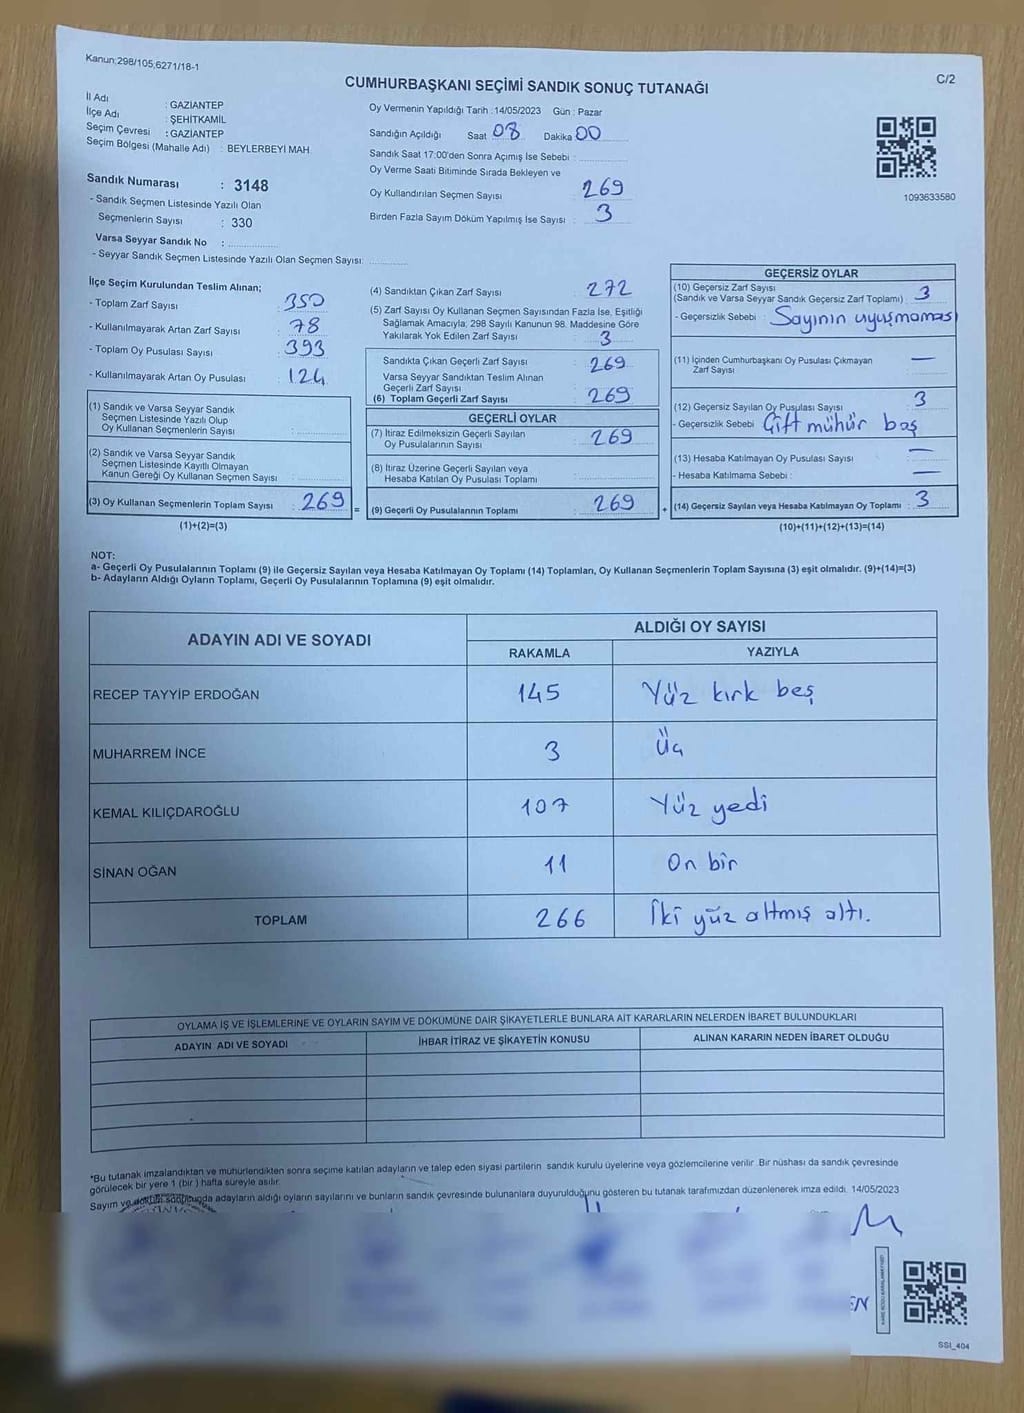 Kanun:298/105,6271/18-1
C/2
CUMHURBAŞKANI SEÇİMİ SANDIK SONUÇ TUTANAĞI
İl Adı : GAZİANTEP
İlçe Adı : ŞEHİTKAMİL
Seçim Çevresi : GAZİANTEP
Seçim Bölgesi (Mahalle Adı) : BEYLERBEYİ MAH.
Sandık Numarası : 3148
- Sandık Seçmen Listesinde Yazılı Olan
Seçmenlerin Sayısı : 330
Varsa Seyyar Sandık No :
- Seyyar Sandık Seçmen Listesinde Yazılı Olan Seçmen Sayısı:
Oy Vermenin Yapıldığı Tarih : 14/05/2023 Gün : Pazar
Sandığın Açıldığı Saat 08 Dakika 00
Sandık Saat 17:00'den Sonra Açımış İse Sebebi :
Oy Verme Saati Bitiminde Sırada Bekleyen ve
Oy Kullandırılan Seçmen Sayısı 269
Birden Fazla Sayım Döküm Yapılmış İse Sayısı : 3
1093633580
İlçe Seçim Kurulundan Teslim Alınan;
- Toplam Zarf Sayısı : 350
- Kullanılmayarak Artan Zarf Sayısı : 78
- Toplam Oy Pusulası Sayısı : 393
- Kullanılmayarak Artan Oy Pusulası : 124
(1) Sandık ve Varsa Seyyar Sandık
Seçmen Listesinde Yazılı Olup
Oy Kullanan Seçmenlerin Sayısı :
(2) Sandık ve Varsa Seyyar Sandık
Seçmen Listesinde Kayıtlı Olmayan
Kanun Gereği Oy Kullanan Seçmen Sayısı :
(3) Oy Kullanan Seçmenlerin Toplam Sayısı : 269
(1)+(2)=(3)
=
(4) Sandıktan Çıkan Zarf Sayısı : 272
(5) Zarf Sayısı Oy Kullanan Seçmen Sayısından Fazla İse, Eşitliği
Sağlamak Amacıyla, 298 Sayılı Kanunun 98. Maddesine Göre
Yakılarak Yok Edilen Zarf Sayısı : 3
Sandıkta Çıkan Geçerli Zarf Sayısı : 269
Varsa Seyyar Sandıktan Teslim Alınan
Geçerli Zarf Sayısı :
(6) Toplam Geçerli Zarf Sayısı : 269
GEÇERLİ OYLAR
(7) İtiraz Edilmeksizin Geçerli Sayılan
Oy Pusulalarının Sayısı : 269
(8) İtiraz Üzerine Geçerli Sayılan veya
Hesaba Katılan Oy Pusulası Toplamı :
(9) Geçerli Oy Pusulalarının Toplamı : 269
+
GEÇERSİZ OYLAR
(10) Geçersiz Zarf Sayısı
(Sandık ve Varsa Seyyar Sandık Geçersiz Zarf Toplamı) : 3
- Geçersizlik Sebebi : Sayının uyuşmaması
(11) İçinden Cumhurbaşkanı Oy Pusulası Çıkmayan
Zarf Sayısı : —
(12) Geçersiz Sayılan Oy Pusulası Sayısı : 3
- Geçersizlik Sebebi : Çift mühür baş
(13) Hesaba Katılmayan Oy Pusulası Sayısı : —
- Hesaba Katılmama Sebebi : —
(14) Geçersiz Sayılan veya Hesaba Katılmayan Oy Toplamı : 3
(10)+(11)+(12)+(13)=(14)
NOT:
a- Geçerli Oy Pusulalarının Toplamı (9) ile Geçersiz Sayılan veya Hesaba Katılmayan Oy Toplamı (14) Toplamları, Oy Kullanan Seçmenlerin Toplam Sayısına (3) eşit olmalıdır. (9)+(14)=(3)
b- Adayların Aldığı Oyların Toplamı, Geçerli Oy Pusulalarının Toplamına (9) eşit olmalıdır.
ADAYIN ADI VE SOYADI
ALDIĞI OY SAYISI
RAKAMLA YAZIYLA
RECEP TAYYİP ERDOĞAN 145 Yüz kırk beş
MUHARREM İNCE 3 Üç
KEMAL KILIÇDAROĞLU 107 Yüz yedi
SİNAN OĞAN 11 On bir
TOPLAM 266 İki yüz altmış altı.
OYLAMA İŞ VE İŞLEMLERİNE VE OYLARIN SAYIM VE DÖKÜMÜNE DAİR ŞİKAYETLERLE BUNLARA AİT KARARLARIN NELERDEN İBARET BULUNDUKLARI
ADAYIN ADI VE SOYADI İHBAR İTİRAZ VE ŞİKAYETİN KONUSU ALINAN KARARIN NEDEN İBARET OLDUĞU
*Bu tutanak imzalandıktan ve mühürlendikten sonra seçime katılan adayların ve talep eden siyasi partilerin sandık kurulu üyelerine veya gözlemcilerine verilir. Bir nüshası da sandık çevresinde
görülecek bir yere 1 (bir) hafta süreyle asılır.
Sayım ve döküm sonucunda adayların aldığı oyların sayılarını ve bunların sandık çevresinde bulunanlara duyurulduğunu gösteren bu tutanak tarafımızdan düzenlenerek imza edildi. 14/05/2023
EN
SSI_404